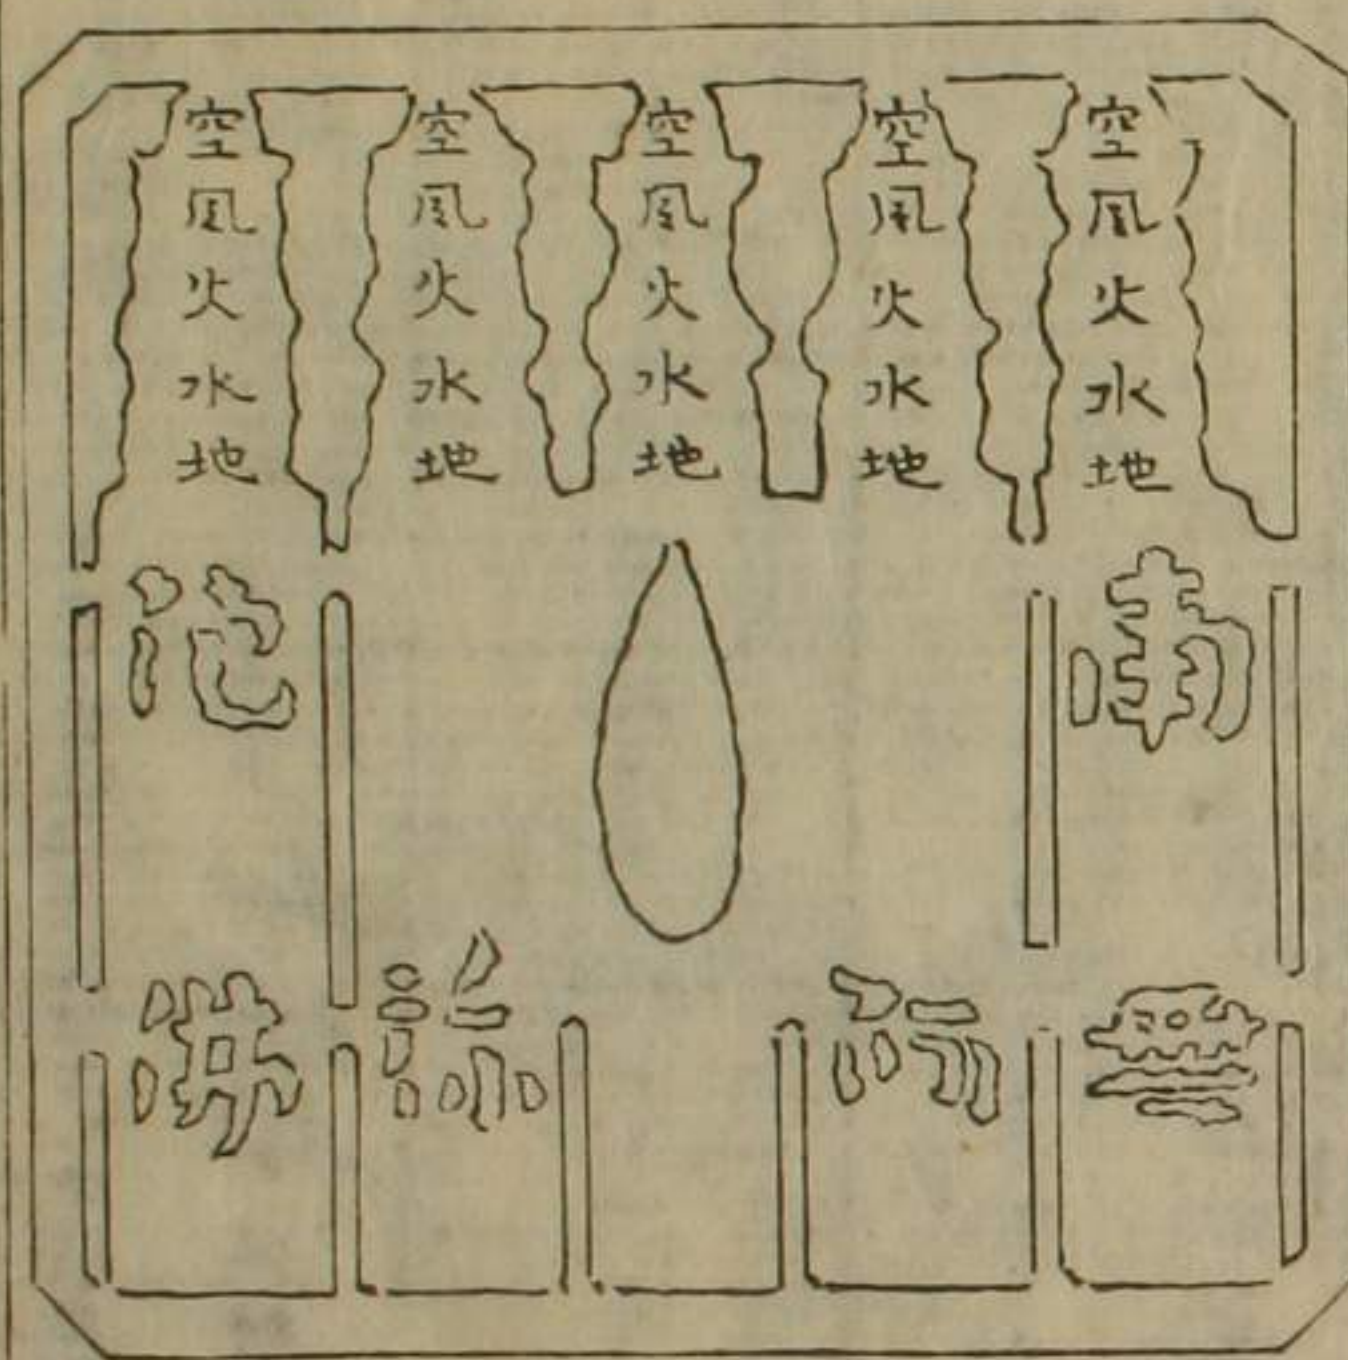 空風火水地
空風火水地
空風火水地
空風火水地
空風火水地
南無
阿
弥
陀佛